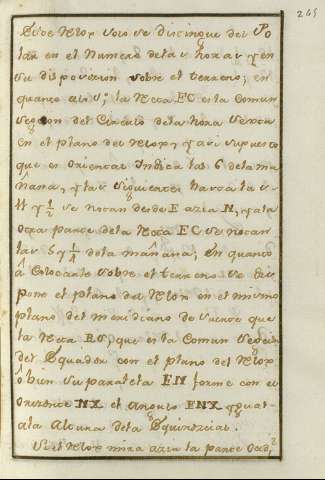 265
Este Relox solo se distingue del Po-
lar en el Numero delas horas, y en
su disposicion sobre el terreno; en
quanto alo 1º; la Recta EC es la Comun
Seccion del Circulo dela hora Sexta
en el plano del Relox, y asi supuesto
que es Oriental Indica las 6 dela ma-
ñana, y las siguientes hasta las
11 y ½ se notan desde E azia N, y ala
otra parte dela Recta EC se notan
las 5 y ¼ dela mañana; En quanto
â Colocarle sobre el terreno se dis-
pone el plano del Relox en el mismo
plano del meridiano de suerte que
la Recta ES, que es la Comun Seccion
del Equador con el plano del Relox
ô bien su paralela EN forme con el
Orizonte NX el angulo ENX ygual
ala Altura dela Equinoccial.
Si el Relox mira azia la parte Occi